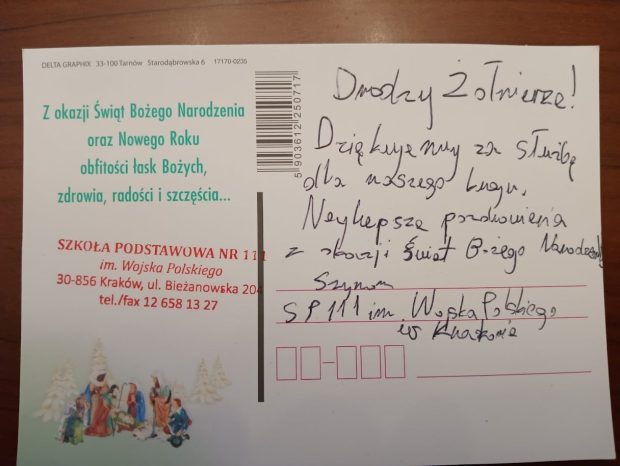 DELTA GRAPHIX 33-100 Tarnów Starodąbrowska 6 17170-0236
Z okazji Świąt Bożego Narodzenia
oraz Nowego Roku
obfitości łask Bożych,
zdrowia, radości i szczęścia...
SZKOŁA PODSTAWOWA NR 111
im. Wojska Polskiego
30-856 Kraków, ul. Bieżanowska 204
tel./fax 12 658 13 27
5 903612 250717
Drodzy Żołnierze!
Dziękujemy za służbę
dla naszego kraju.
Neylepsze pozdrowienia
z okazji Świąt Bożego Narodzenia
Szymon
SP 111 im. Wojska Polskiego
w Krakowie